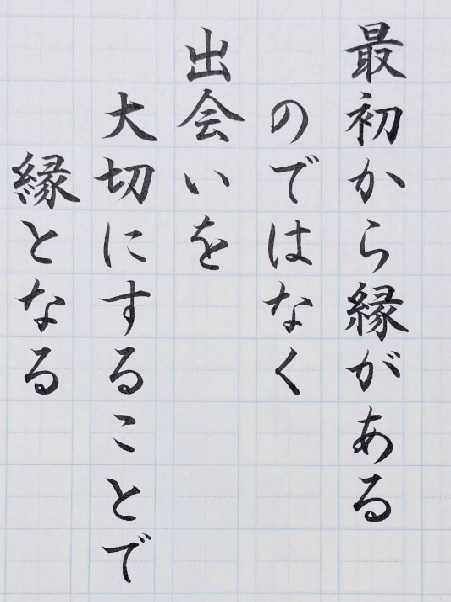 最初から縁がある
のではなく
出会いを
大切にすることで
縁となる